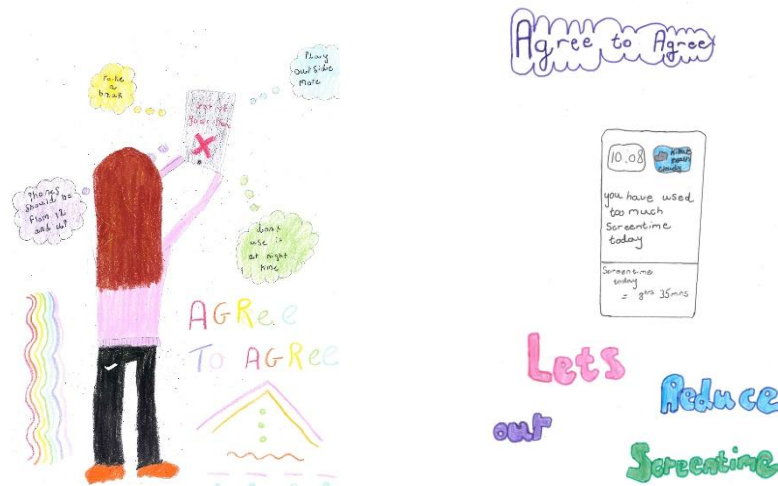 Take
a
break
Play
outside
more
Get off
your phone
Phones
should be
from 12
and up!
dont
use it
at night
time
AGRee
To AGRee
Agree to Agree
10.08
cloudy
you have used
too much
Screentime
today
Screentime
today
= 8hrs 35mns
Lets
Reduce
our
Screentime